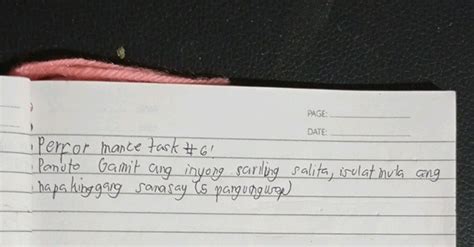 PAGE:
DATE:
Perfor mance task #6!
Panuto Gamit ang inyong sariling salita, isulat mula ang
napakinggang sanasay (5 pangungusap)